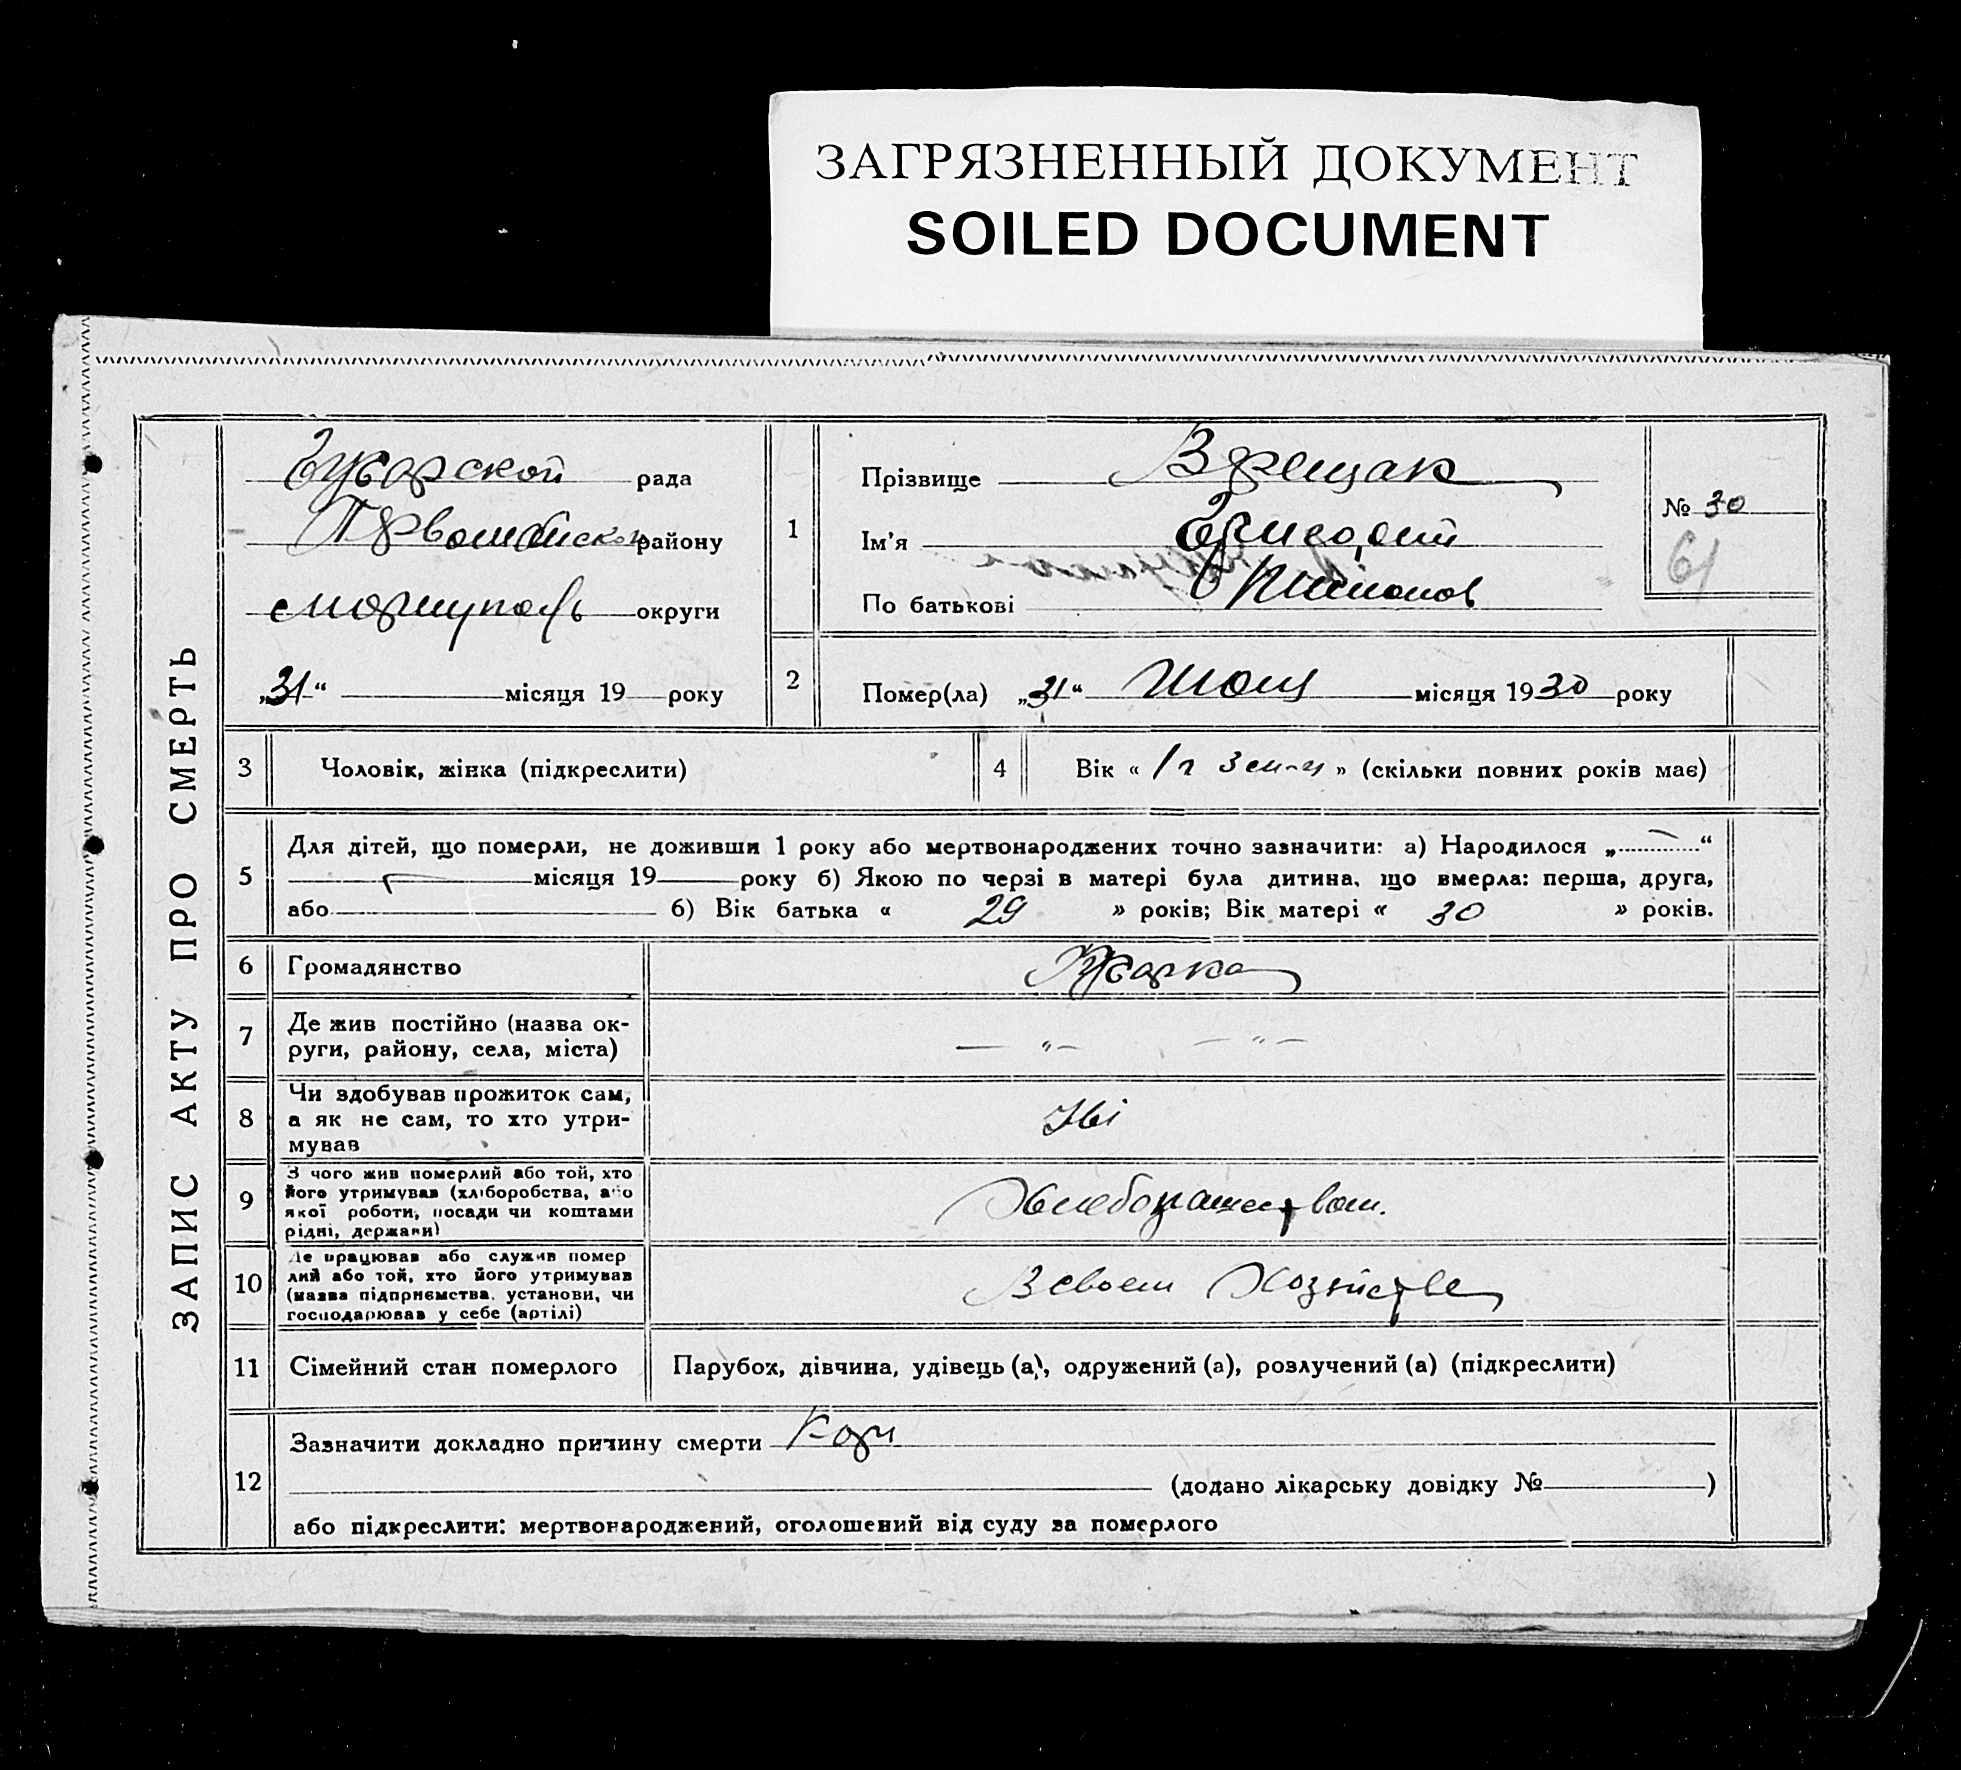 ЗАГРЯЗНЕННЫЙ ДОКУМЕНТ
SOILED DOCUMENT
ЗАПИС АКТУ ПРО СМЕРТЬ
рада
району
округи
„31“ місяця 19 року
1
Прізвище
Ім'я Григорий
По батькові
№ 30
61
2
Помер(ла) „31“ місяця 1930 року
3 Чоловік, жінка (підкреслити)
4 Вік « 1 г 3 » (скільки повних років має)
5
Для дітей, що померли, не доживши 1 року або мертвонароджених точно зазначити: а) Народилося „ “
місяця 19 року б) Якою по черзі в матері була дитина, що вмерла: перша, друга,
або б) Вік батька « 29 » років; Вік матері « 30 » років.
6 Громадянство
7 Де жив постійно (назва ок-
руги, району, села, міста) — „ — — „ —
8 Чи здобував прожиток сам,
а як не сам, то хто утри-
мував Ні
9 З чого жив померлий або той, хто
його утримував (хліборобства, або
якої роботи, посади чи коштами
рідні, держави)
Хлебопашеством.
10 Де працював або служив помер
лий або той, хто його утримував
(назва підприємства, установи, чи
господарював у себе (артілі)
В своем Хозяйстве
11 Сімейний стан померлого Парубок, дівчина, удівець (а), одружений (а), розлучений (а) (підкреслити)
12
Зазначити докладно причину смерти Кори
(додано лікарську довідку № )
або підкреслити: мертвонароджений, оголошений від суду за померлого